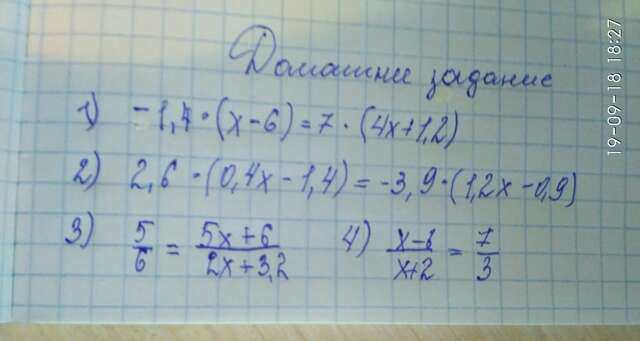 Домашне задание
1) -1,4·(x-6)=7·(4x+1,2)
2) 2,6·(0,4x-1,4)=-3,9·(1,2x-0,9)
3) 5/6 = (5x+6)/(2x+3,2) 4) (x-1)/(x+2) = 7/3
19-09-18 18:27